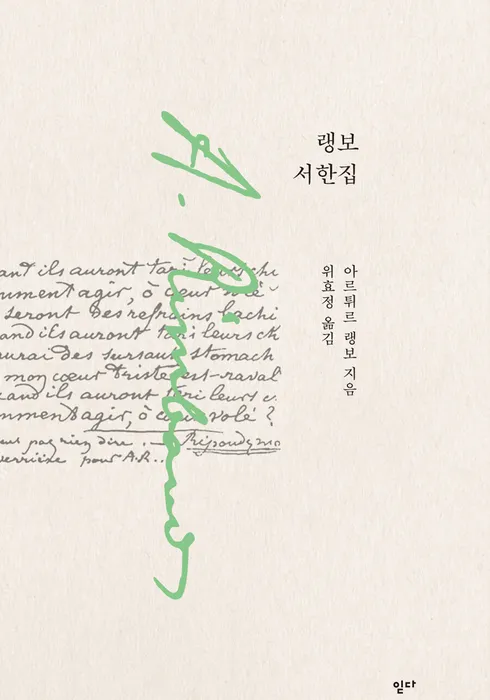 랭보
서한집
아르튀르 랭보 지음
위효정 옮김
A. Rimbaud
ant ils auront tari leurs chi
mment agir, ô cœur volé
seront des refrains bachi
and ils auront tari leurs ch
urai des sursauts stomach
mon cœur triste est raval
and ils auront tari leurs c
mment agir, ô cœur volé ?
pas rien dire. — Répondez mo
pour A.R..
읻다